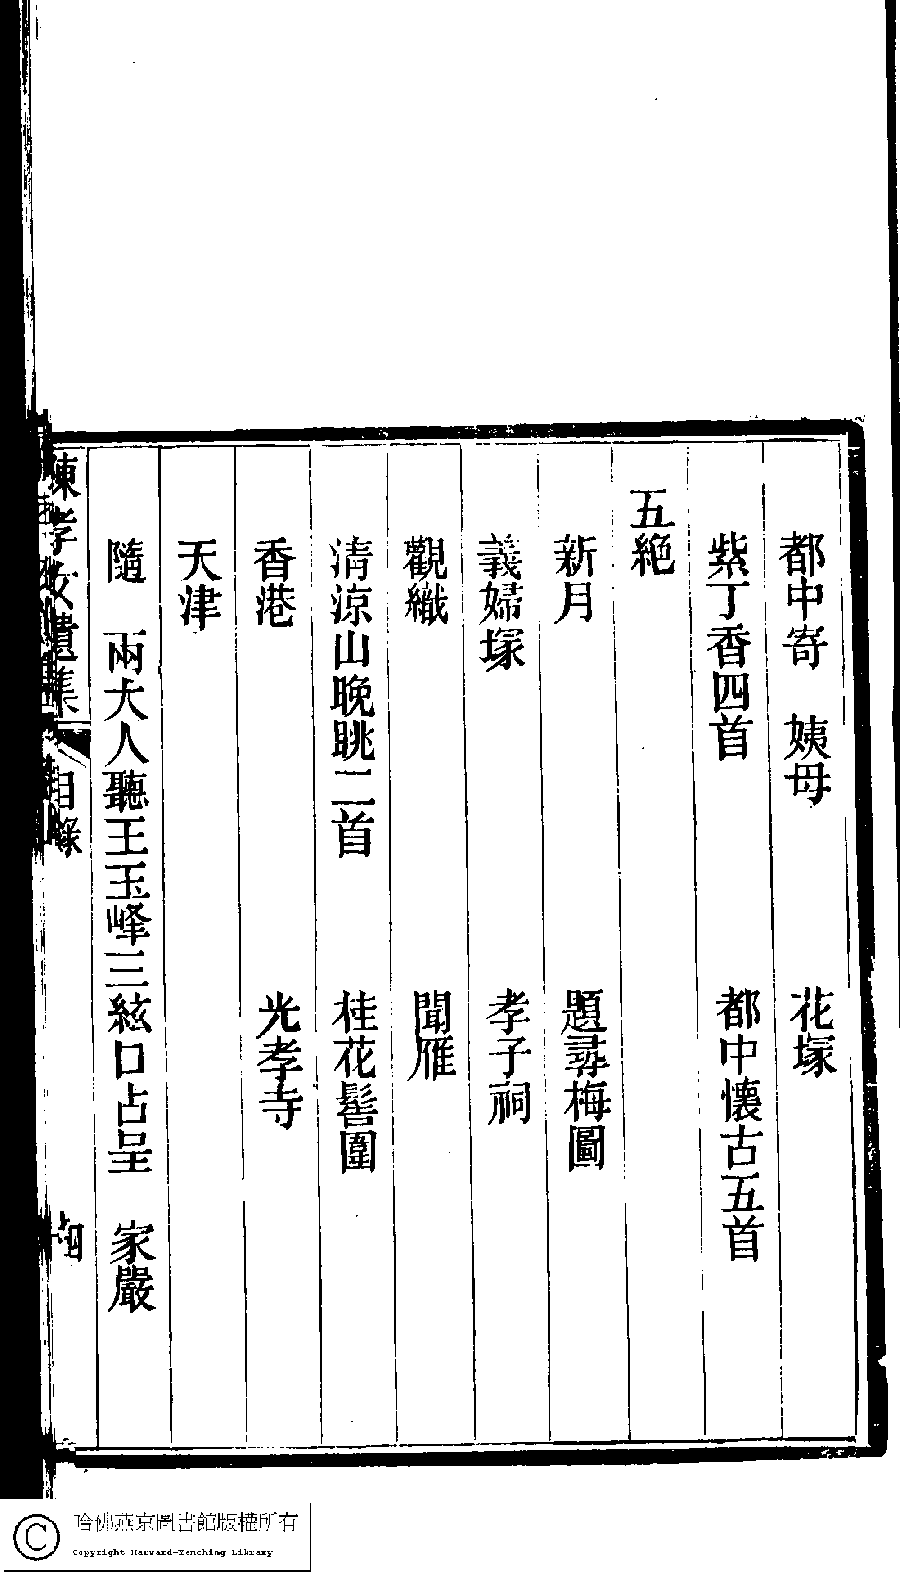 都中寄　姨母　花塚
紫丁香四首　都中懷古五首
五絶
新月　題尋梅圖
義婦塚　孝子祠
觀織　聞雁
清涼山晚眺二首　桂花髻圍
香港　光孝寺
天津
隨　兩大人聽王玉峰三絃口占呈　家嚴
陳孝女遺集　目錄
哈佛燕京圖書館版權所有
Copyright Harvard-Yenching Library